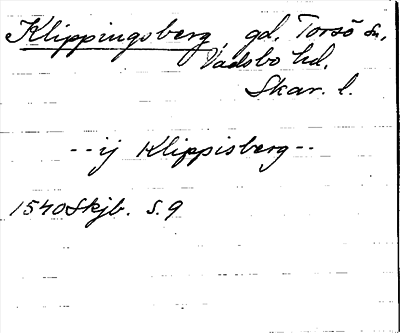 Klippingsberg gd. Torsö sn,
Vadsbo hd.
Skar. l.
--ij Klippisberg--
1540 Skjb. S. 9